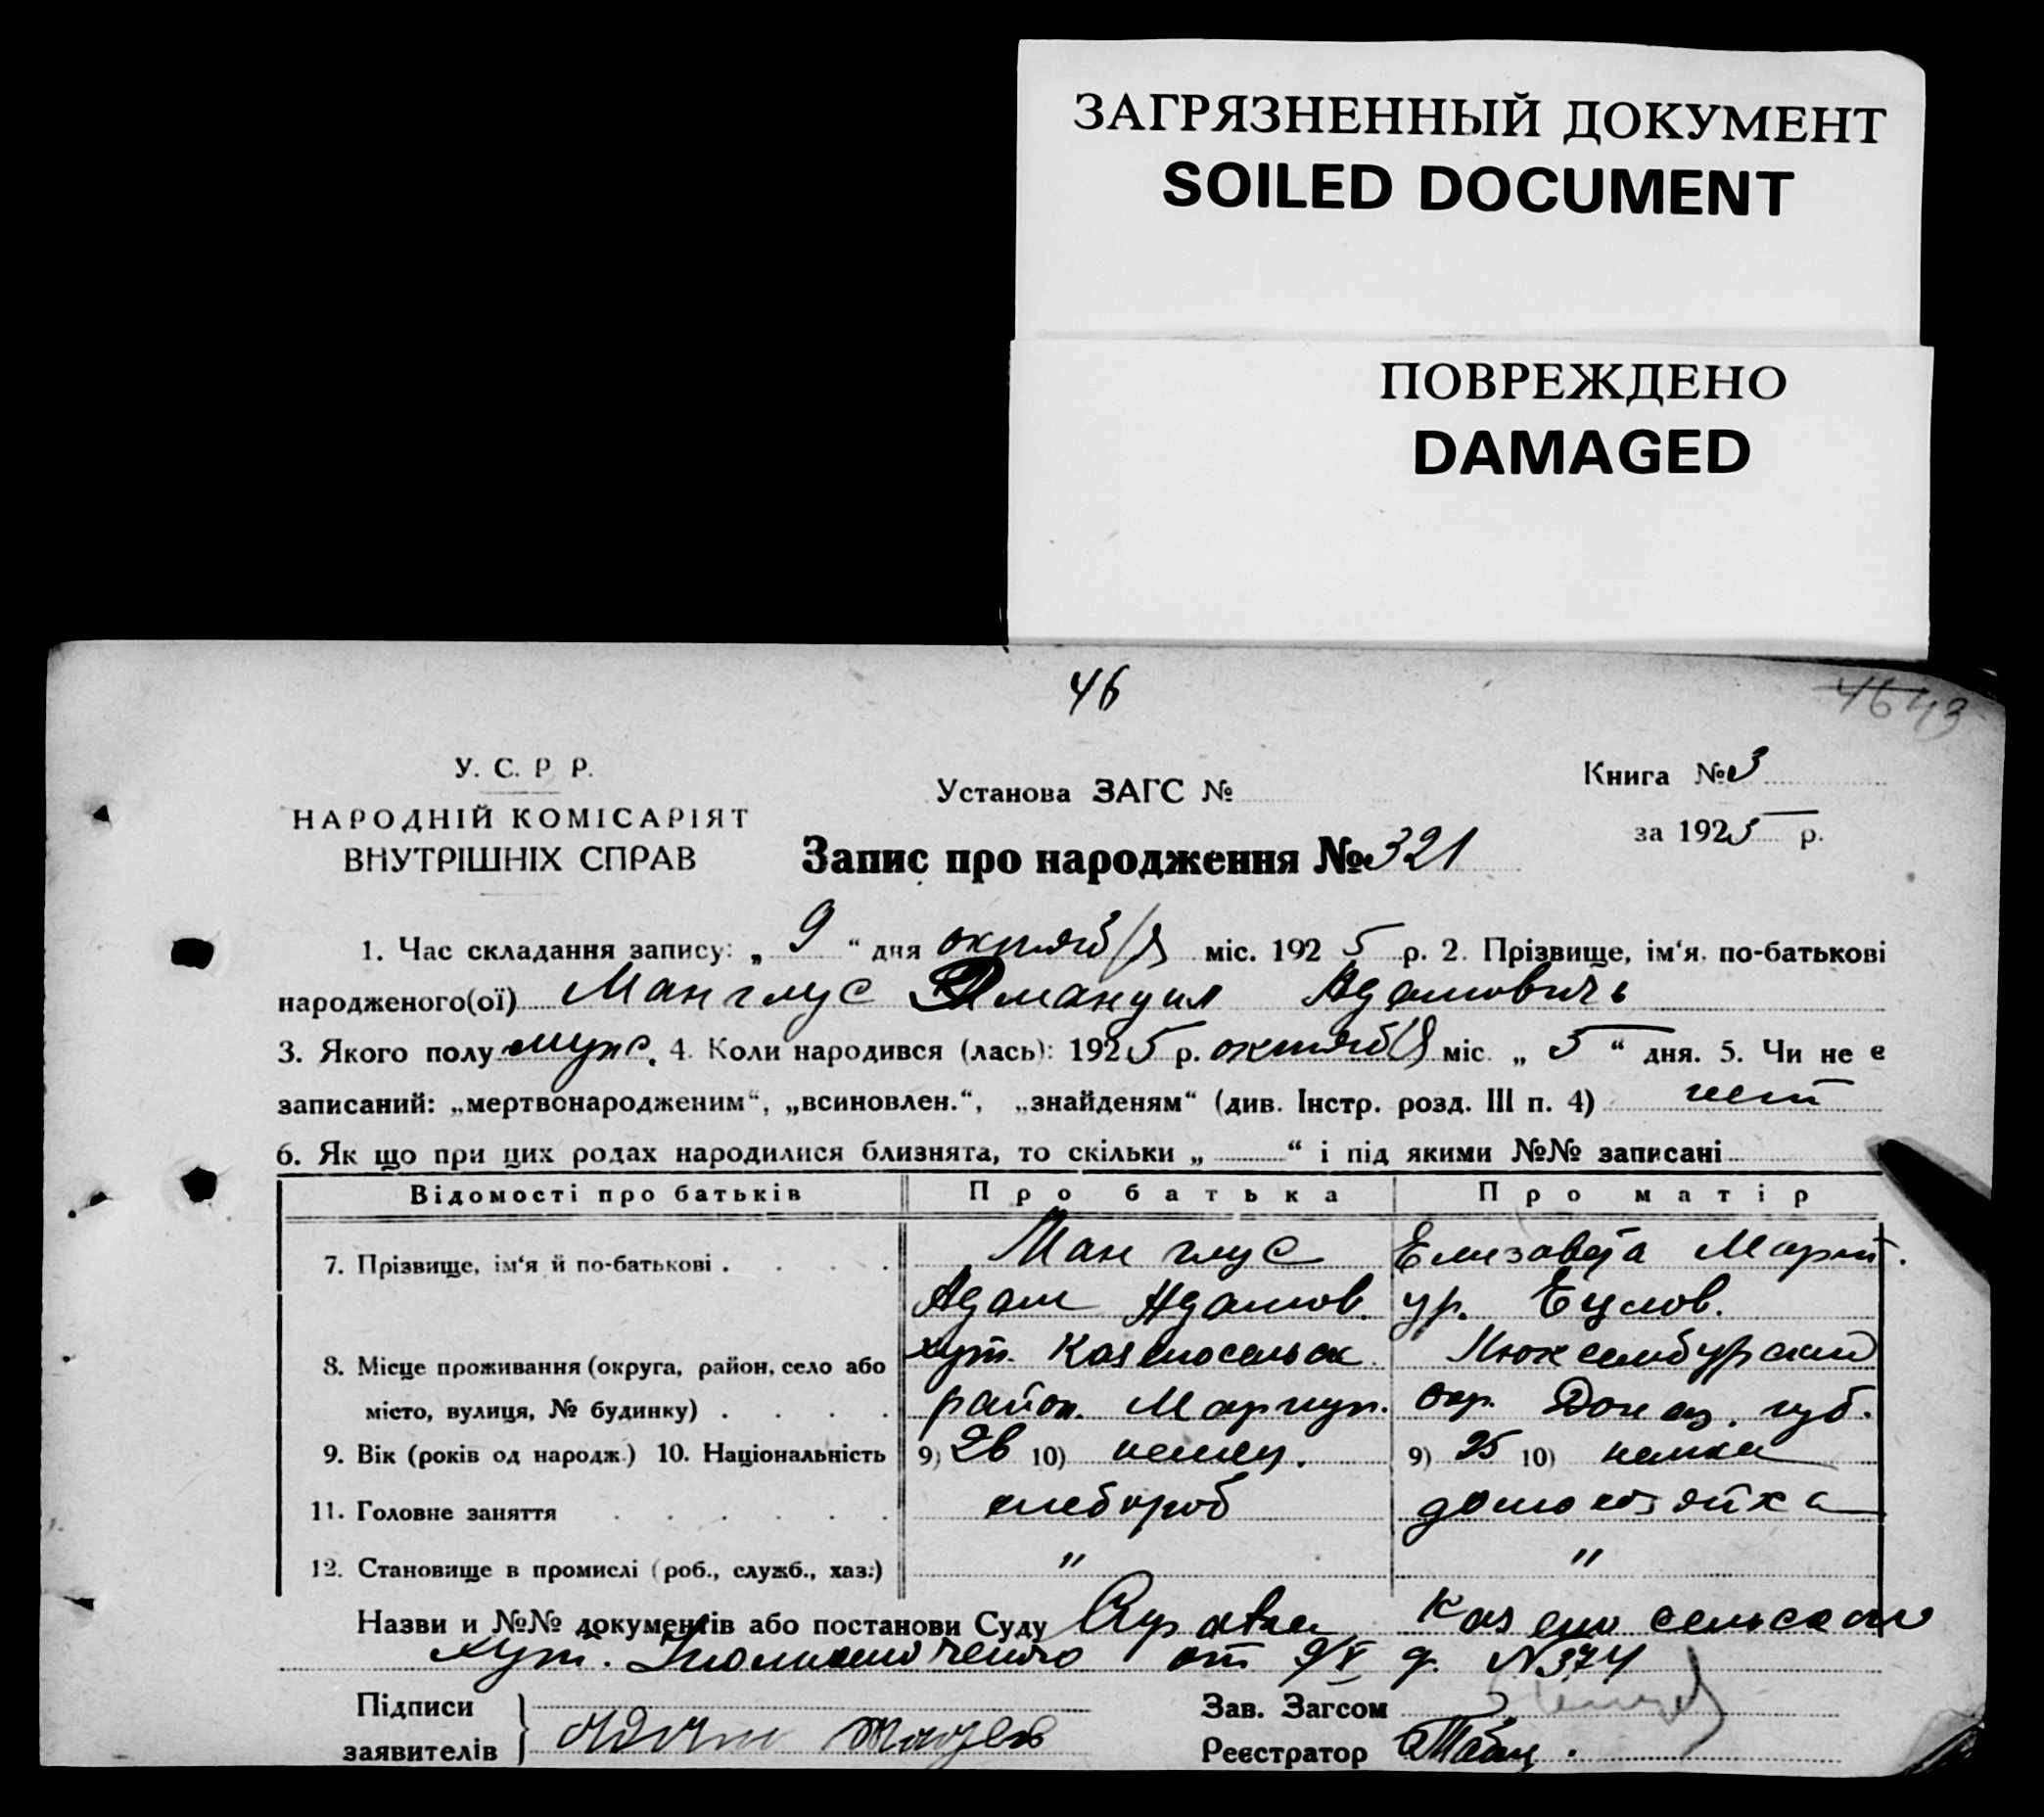 ЗАГРЯЗНЕННЫЙ ДОКУМЕНТ
SOILED DOCUMENT
ПОВРЕЖДЕНО
DAMAGED
46
46 43
У. С. Р Р.
НАРОДНІЙ КОМІСАРІЯТ
ВНУТРІШНІХ СПРАВ
Установа ЗАГС №
Книга № 3
за 1925 р.
Запис про народження № 321
1. Час складання запису: „ 9 “ дня октября міс. 1925 р. 2. Прізвище, ім‘я, по-батькові
народженого(ої) Манглус Эмануил Адамовичь
3. Якого полу муж. 4. Коли народився (лась): 1925 р. октября міс. „ 5 “ дня. 5. Чи не є
записаний: „мертвонародженим“, „всиновлен.“, „знайденям“ (див. Інстр. розд. III п. 4) нет
6. Як що при цих родах народилися близнята, то скільки „ “ і під якими №№ записані
Відомості про батьків Про батька Про матір
7. Прізвище, ім‘я й по-батькові . . . . Манглус Елизавета Март.
Адам Адамов. ур.
8. Місце проживання (округа, район, село або хут. Казеносельск. Люксембургский
місто, вулиця, № будинку) . . . . район. Мариуп. окр. Донец. губ.
9. Вік (років од народж.) 10. Національність 9) 26 10) немец. 9) 25 10) немка
11. Головне заняття . . . . . . хлебороб домохозяйка
12. Становище в промислі (роб., служб., хаз.) " "
Назви и №№ документів або постанови Суду Справка Казеносельского
хут. от 9/X д. N 374
Підписи
заявителів Адам
Зав. Загсом
Реєстратор